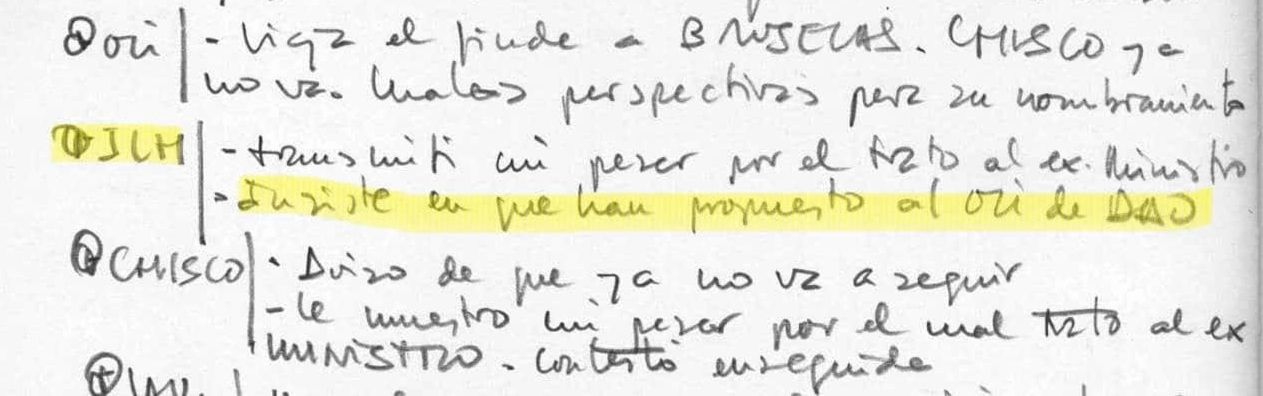 Oli - Viaja el finde a BRUSELAS. CHISCO ya
no va. Malas perspectivas para su nombramiento
JLH - transmití mi pesar por el trato al ex. Ministro
- Insiste en que han propuesto al Oli de DAO
CHISCO - Aviso de que ya no va a seguir
- Le muestro mi pesar por el mal trato al ex
MINISTRO - Contestó enseguida